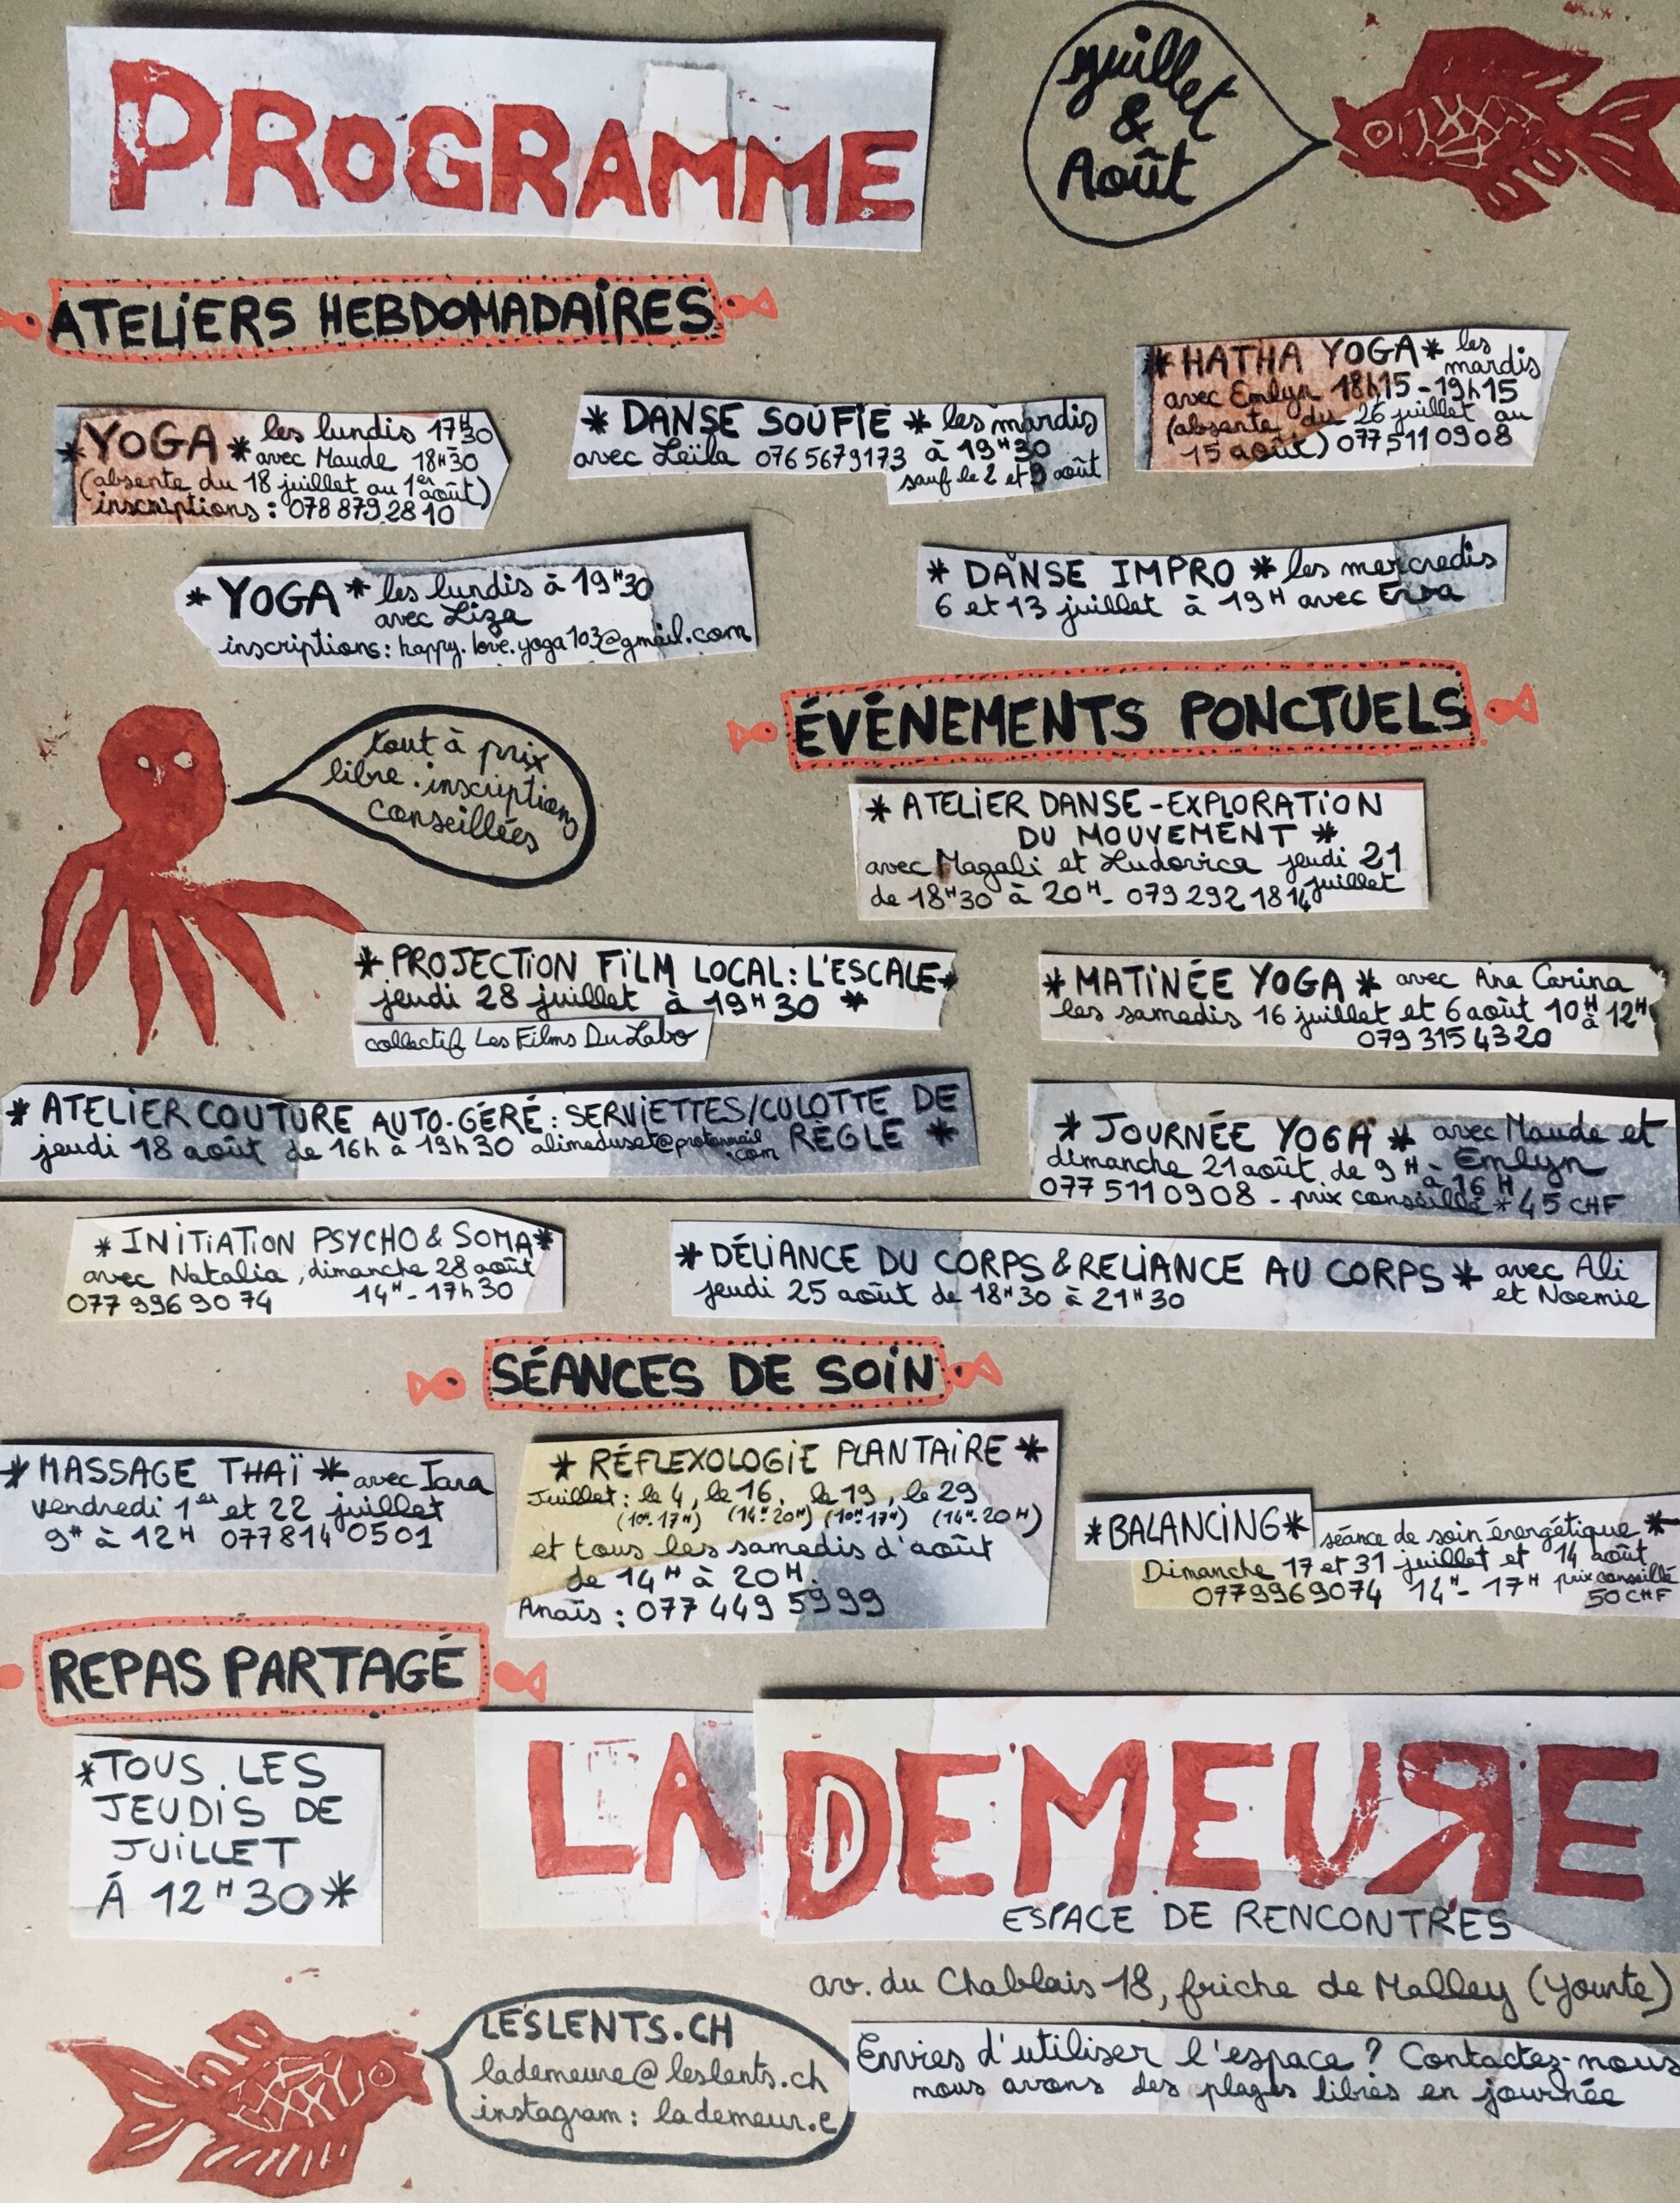 PROGRAMME
juillet
&
Août
ATELIERS HEBDOMADAIRES
* YOGA * les lundis 17H30
avec Maude 18H30
(absente du 18 juillet au 1er août)
inscriptions : 078 879 28 10
* DANSE SOUFIE * les mardis
avec Leïla 076 567 9173 à 19H30
sauf le 2 et 9 août
* HATHA YOGA * les
mardis
avec Emlyn 18h15-19h15
(absente du 26 juillet au
15 août) 077 511 09 08
* YOGA * les lundis à 19H30
avec Liza
inscriptions: happy.love.yoga103@gmail.com
* DANSE IMPRO * les mercredis
6 et 13 juillet à 19H avec
tout à prix
libre. inscriptions
conseillées
ÉVÉNEMENTS PONCTUELS
* ATELIER DANSE-EXPLORATION
DU MOUVEMENT *
avec Magali et Ludovica jeudi 21
juillet
de 18H30 à 20H - 079 292 18 14
* PROJECTION FILM LOCAL: L'ESCALE *
jeudi 28 juillet à 19H30 *
collectif Les Films Du Labo
* MATINÉE YOGA * avec Ana Carina
les samedis 16 juillet et 6 août 10H à 12H
079 315 43 20
* ATELIER COUTURE AUTO-GÉRÉ: SERVIETTES/CULOTTE DE
RÈGLE *
jeudi 18 août de 16h à 19h30 alimeduset@protonmail
.com
* JOURNÉE YOGA * avec Maude et
Emlyn
dimanche 21 août de 9H à 16H
077 511 09 08 - prix conseillé * 45 CHF
* INITIATION PSYCHO & SOMA *
avec Natalia, dimanche 28 août
077 996 90 74 14H-17h30
* DÉLIANCE DU CORPS & RELIANCE AU CORPS * avec Ali
et Noemie
jeudi 25 août de 18H30 à 21H30
SÉANCES DE SOIN
* MASSAGE THAÏ * avec Iara
vendredi 1er et 22 juillet
9H à 12H 077 814 05 01
* RÉFLEXOLOGIE PLANTAIRE *
Juillet: le 4, le 16, le 19, le 29
(10H-17H) (14H-20H) (10H-17H) (14H-20H)
et tous les samedis d'août
de 14H à 20H.
Anaïs : 077 449 59 99
* BALANCING * séance de soin énergétique *
Dimanche 17 et 31 juillet et 14 août
077 996 90 74 14H-17H prix conseillé
50 CHF
REPAS PARTAGÉ
* TOUS LES
JEUDIS DE
JUILLET
À 12H30 *
LA DEMEURE
ESPACE DE RENCONTRES
av. du Chablais 18, friche de Malley (Yourte)
LESLENTS.CH
lademeure@leslents.ch
instagram: lademeur.e
Envies d'utiliser l'espace ? Contactez-nous
nous avons des plages libres en journée